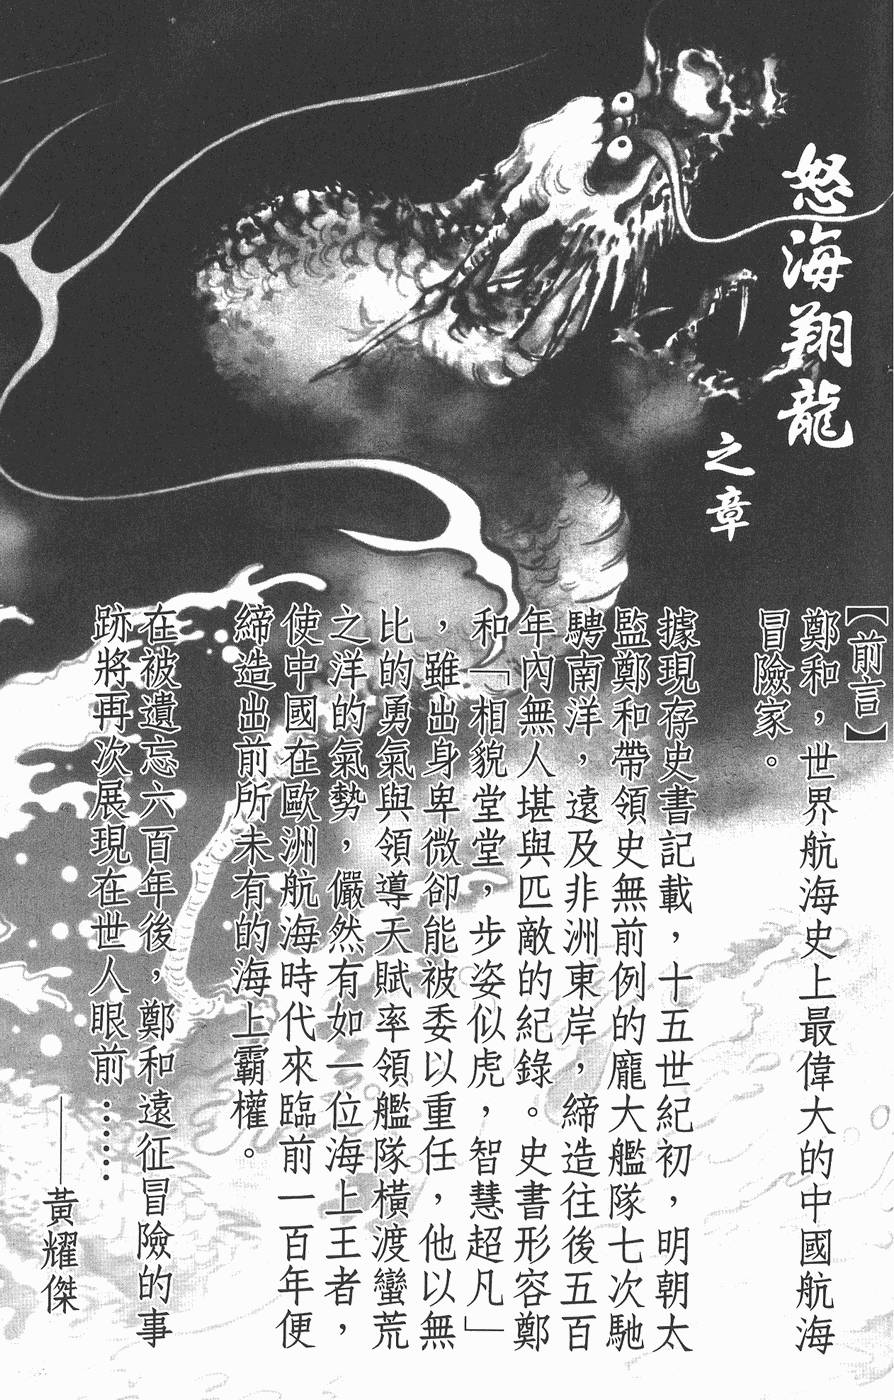 怒海翔龍
之章
【前言】
鄭和，世界航海史上最偉大的中國航海
冒險家。
據現存史書記載，十五世紀初，明朝太
監鄭和帶領史無前例的龐大艦隊七次馳
騁南洋，遠及非洲東岸，締造往後五百
年內無人堪與匹敵的紀錄。史書形容鄭
和「相貌堂堂，步姿似虎，智慧超凡」
，雖出身卑微卻能被委以重任，他以無
比的勇氣與領導天賦率領艦隊橫渡蠻荒
之洋的氣勢，儼然有如一位海上王者，
使中國在歐洲航海時代來臨前一百年便
締造出前所未有的海上霸權。
在被遺忘六百年後，鄭和遠征冒險的事
跡將再次展現在世人眼前……
——黃耀傑